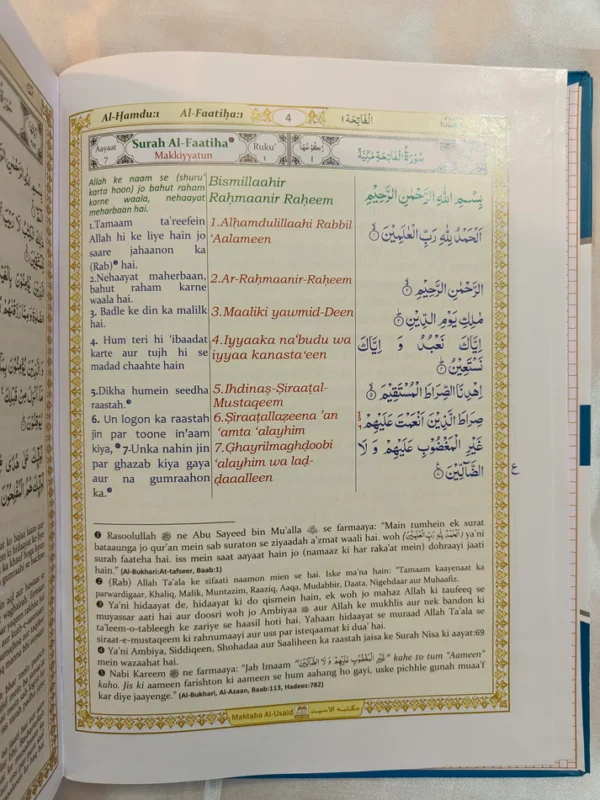 Al-Ḥamdu:1 Al-Faatiḥa:1 4 الْفَاتِحَة ١
Aayaat 7 Surah Al-Faatiha❶ Makkiyyatun Ruku' 1 سُوْرَةُ الْفَاتِحَةِ مَكِّيَّةٌ
Allah ke naam se (shuru'
karta hoon) jo bahut raham
karne waala, nehaayat
meharbaan hai.
Bismillaahir
Raḥmaanir Raḥeem
بِسْمِ اللّٰهِ الرَّحْمٰنِ الرَّحِيْمِ
1.Tamaam ta'reefein
Allah hi ke liye hain jo
saare jahaanon ka
(Rab)❷ hai.
1.Alḥamdulillaahi Rabbil
'Aalameen
اَلْحَمْدُ لِلّٰهِ رَبِّ الْعٰلَمِيْنَ ۝١
2.Nehaayat maherbaan,
bahut raham karne
waala hai.
2.Ar-Raḥmaanir-Raḥeem
الرَّحْمٰنِ الرَّحِيْمِ ۝٢
3. Badle ke din ka malilk
hai.
3.Maaliki yawmid-Deen
مٰلِكِ يَوْمِ الدِّيْنِ ۝٣
4. Hum teri hi 'ibaadat
karte aur tujhi hi se
madad chaahte hain
4.Iyyaaka na'budu wa
iyyaa kanasta'een
اِيَّاكَ نَعْبُدُ وَ اِيَّاكَ
نَسْتَعِيْنُ ۝٤
5.Dikha humein seedha
raastah.❸
5.Ihdinaṣ-Ṣiraaṭal-
Mustaqeem
اِهْدِنَا الصِّرَاطَ الْمُسْتَقِيْمَ ۝٥
6. Un logon ka raastah
jin par toone in'aam
kiya, ❹ 7-Unka nahin jin
par ghazab kiya gaya
aur na gumraahon
ka.❺
6.Ṣiraaṭallazeena 'an
'amta 'alayhim
7.Ghayrilmaghḍoobi
'alayhim wa laḍ-
ḍaaalleen
صِرَاطَ الَّذِيْنَ اَنْعَمْتَ عَلَيْهِمْ
غَيْرِ الْمَغْضُوْبِ عَلَيْهِمْ وَ لَا
الضَّآلِّيْنَ ۝٧
ع
❶ Rasoolullah ﷺ ne Abu Sayeed bin Mu'alla se farmaaya: "Main tumhein ek surat
bataaunga jo qur'an mein sab suraton se ziyaadah a'zmat waali hai. woh (اَلْحَمْدُ لِلّٰهِ رَبِّ الْعٰلَمِيْنَ) ya'ni
surah faateha hai. iss mein saat aayaat hain jo (namaaz ki har raka'at mein) dohraayi jaati
hain." (Al-Bukhari:At-tafseer, Baab:1)
❷ (Rab) Allah Ta'ala ke sifaati naamon mien se hai. Iske ma'na hain: "Tamaam kaayenaat ka
parwardigaar, Khaliq, Malik, Muntazim, Raaziq, Aaqa, Mudabbir, Daata, Nigehdaar aur Muhaafiz.
❸ Ya'ni hidaayat de, hidaayat ki do qismein hain, ek woh jo mahaz Allah ki taufeeq se
muyassar aati hai aur doosri woh jo Ambiyaa aur Allah ke mukhlis aur nek bandon ki
ta'leem-o-tableegh ke zariye se haasil hoti hai. Yahaan hidaayat se muraad Allah Ta'ala se
siraat-e-mustaqeem ki rahnumaayi aur uss par isteqaamat ki dua' hai.
❹ Ya'ni Ambiya, Siddiqeen, Shohadaa aur Saaliheen ka raastah jaisa ke Surah Nisa ki aayat:69
mein wazaahat hai.
❺ Nabi Kareem ﷺ ne farmaaya: "Jab Imaam "غَيْرِ الْمَغْضُوْبِ عَلَيْهِمْ وَ لَا الضَّآلِّيْنَ" kahe to tum "Aameen"
kaho. Jis ki aameen farishton ki aameen se hum aahang ho gayi, uske pichhle gunah muaa'f
kar diye jaayenge." (Al-Bukhari, Al-Azaan, Baab:113, Hadees:782)
Maktaba Al-Usaid مكتبه الاسيد